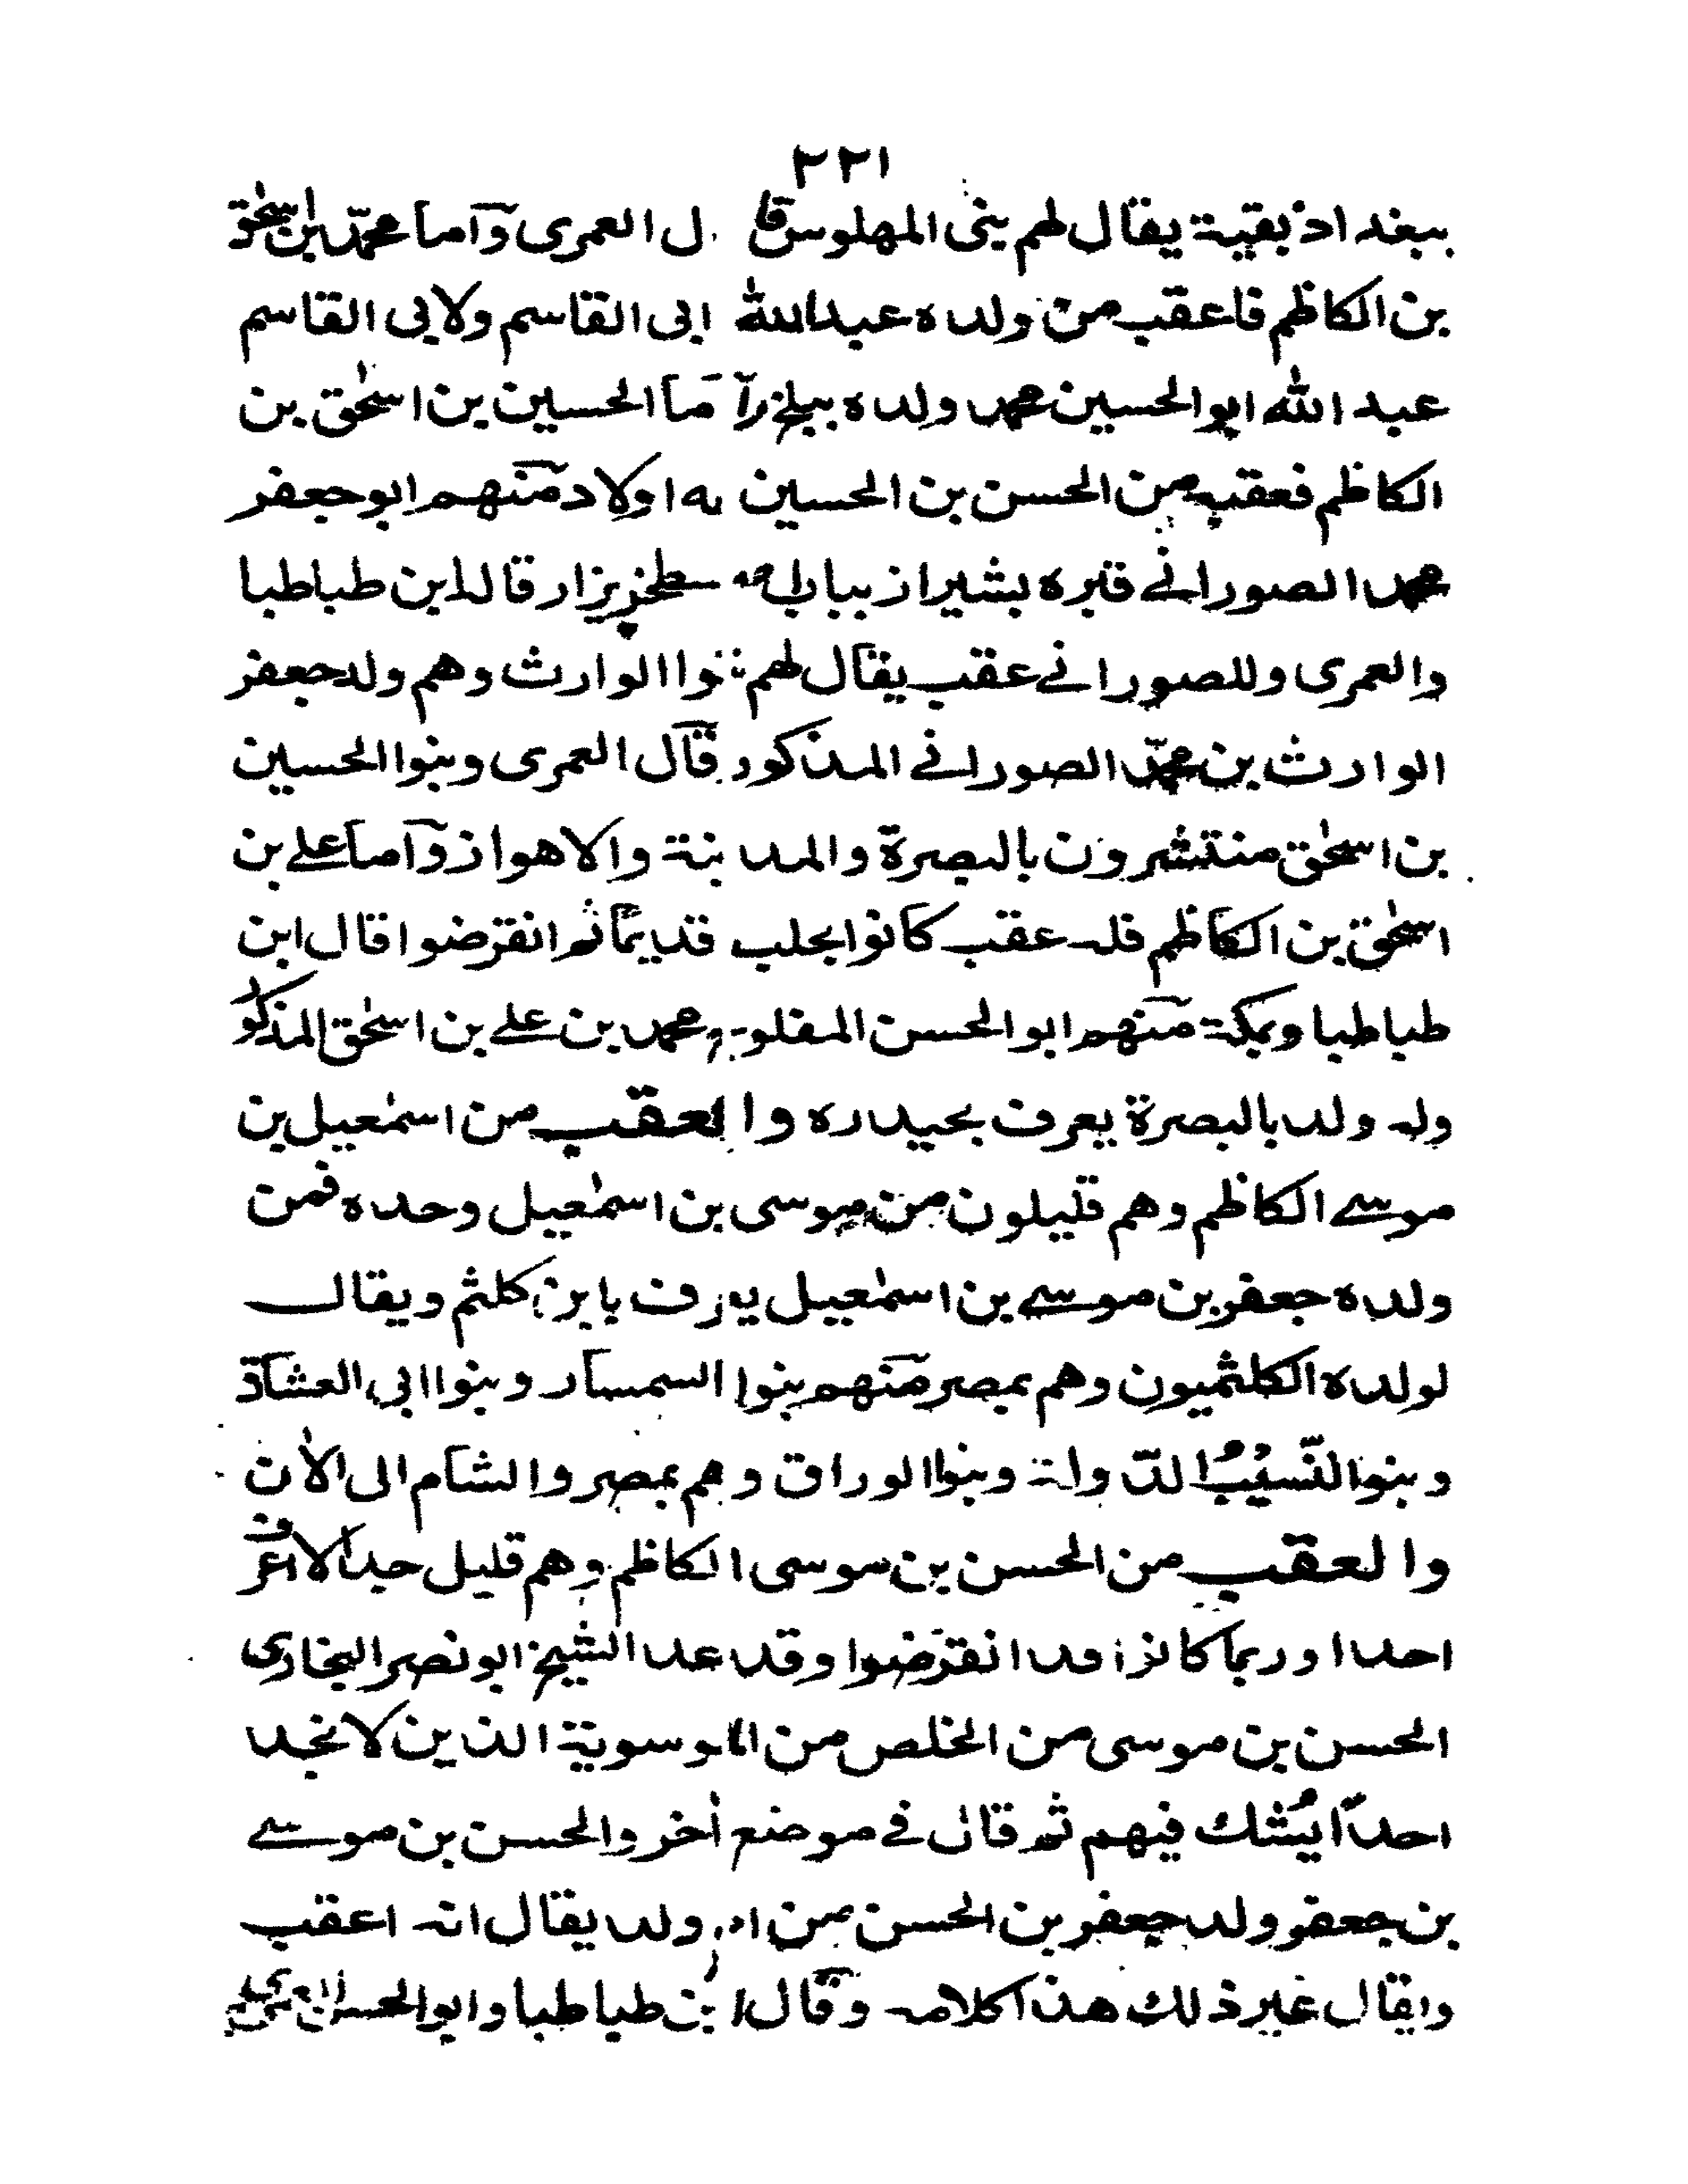 ٢٢١
ببغداذ بقية يقال لهم بنى المهلوس قا ل العمرى وآما محمّد بن اسحٰق
بن الكاظم فاعقب من ولده عبدالله ابى القاسم ولابى القاسم
عبد الله ابو الحسين محمد ولده ببلخ وآما الحسين بن اسحٰق بن
الكاظم فعقبه من الحسن بن الحسين له اولاد منهم ابو جعفر
محمد الصورانے قبره بشيراز بباب اصطخر يزار قال ابن طباطبا
والعمرى وللصورانے عقب يقال لهم بنوا الوارث وهم ولد جعفر
الوارث بن محمّد الصورانے المذكور قال العمرى وبنوا الحسين
بن اسحٰق منتشرون بالبصرة والمدينة والاهواز وآما علے بن
اسحٰق بن الكاظم فله عقب كانوا بحلب قديمًا ثم انقرضوا قال ابن
طباطبا وبمكة منهم ابو الحسن المفلوج محمد بن علے بن اسحٰق المذكور
وله ولد بالبصرة يعرف بحيدره والعقب من اسمٰعيل بن
موسے الكاظم وهم قليلون من موسى بن اسمٰعيل وحده فمن
ولده جعفر بن موسے بن اسمٰعيل يعرف بابن كلثم ويقال
لولده الكلثميون وهم بمصر منهم بنوا السمسار وبنوا ابى العشاق
وبنوا النّسيب الدّولة وبنوا الوراق وهم بمصر والشام الى الاٰن
والعقب من الحسن بن موسى الكاظم وهم قليل جدا لا اعرف
احدا وربما كانوا قد انقرضوا وقد عد الشيخ ابو نصر البخارى
الحسن بن موسى من الخلص من الموسوية الذين لا نجد
احدًا يشك فيهم ثم قال فے موضع اٰخر والحسن بن موسے
بن جعفر ولد جعفر بن الحسن من ام ولد يقال انه اعقب
ويقال غير ذلك هذا كلامه وقال ابن طباطبا وابو الحسن